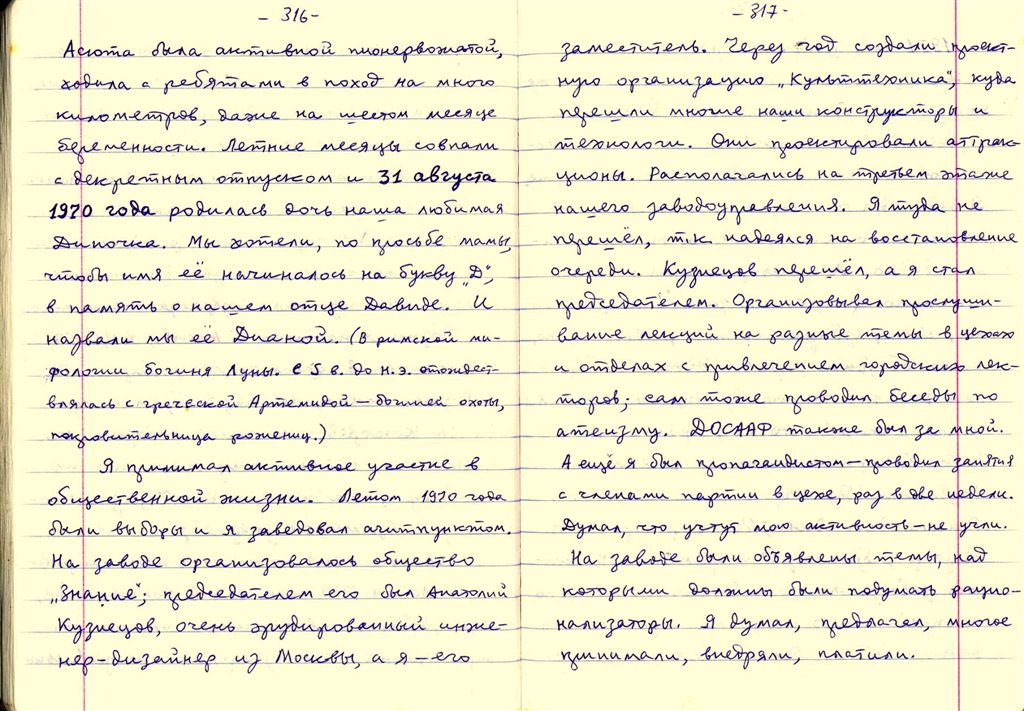 - 316-
Асюта была активной пионервожатой,
ходила с ребятами в поход на много
километров, даже на шестом месяце
беременности. Летние месяцы совпали
с декретным отпуском и 31 августа
1970 года родилась дочь наша любимая
Диночка. Мы хотели, по просьбе мамы,
чтобы имя её начиналось на букву „Д“,
в память о нашем отце Давиде. И
назвали мы её Дианой. (В римской ми-
фологии богиня Луны. С 5 в. до н.э. отождест-
влялась с греческой Артемидой — богиней охоты,
покровительница рожениц.)
Я принимал активное участие в
общественной жизни. Летом 1970 года
были выборы и я заведовал агитпунктом.
На заводе организовалось общество
„Знание“; председателем его был Анатолий
Кузнецов, очень эрудированный инже-
нер-дизайнер из Москвы, а я — его
- 317-
заместитель. Через год создали проект-
ную организацию „Культтехника“, куда
перешли многие наши конструкторы и
технологи. Они проектировали аттрак-
ционы. Располагались на третьем этаже
нашего заводоуправления. Я туда не
перешёл, т.к. надеялся на восстановление
очереди. Кузнецов перешёл, а я стал
председателем. Организовывал прослуши-
вание лекций на разные темы в цехах
и отделах с привлечением городских лек-
торов; сам тоже проводил беседы по
атеизму. ДОСААФ также был за мной.
А ещё я был пропагандистом — проводил занятия
с членами партии в цехе, раз в две недели.
Думал, что учтут мою активность — не учли.
На заводе были объявлены темы, над
которыми должны были подумать рацио-
нализаторы. Я думал, предлагал, многое
принимали, внедряли, платили.